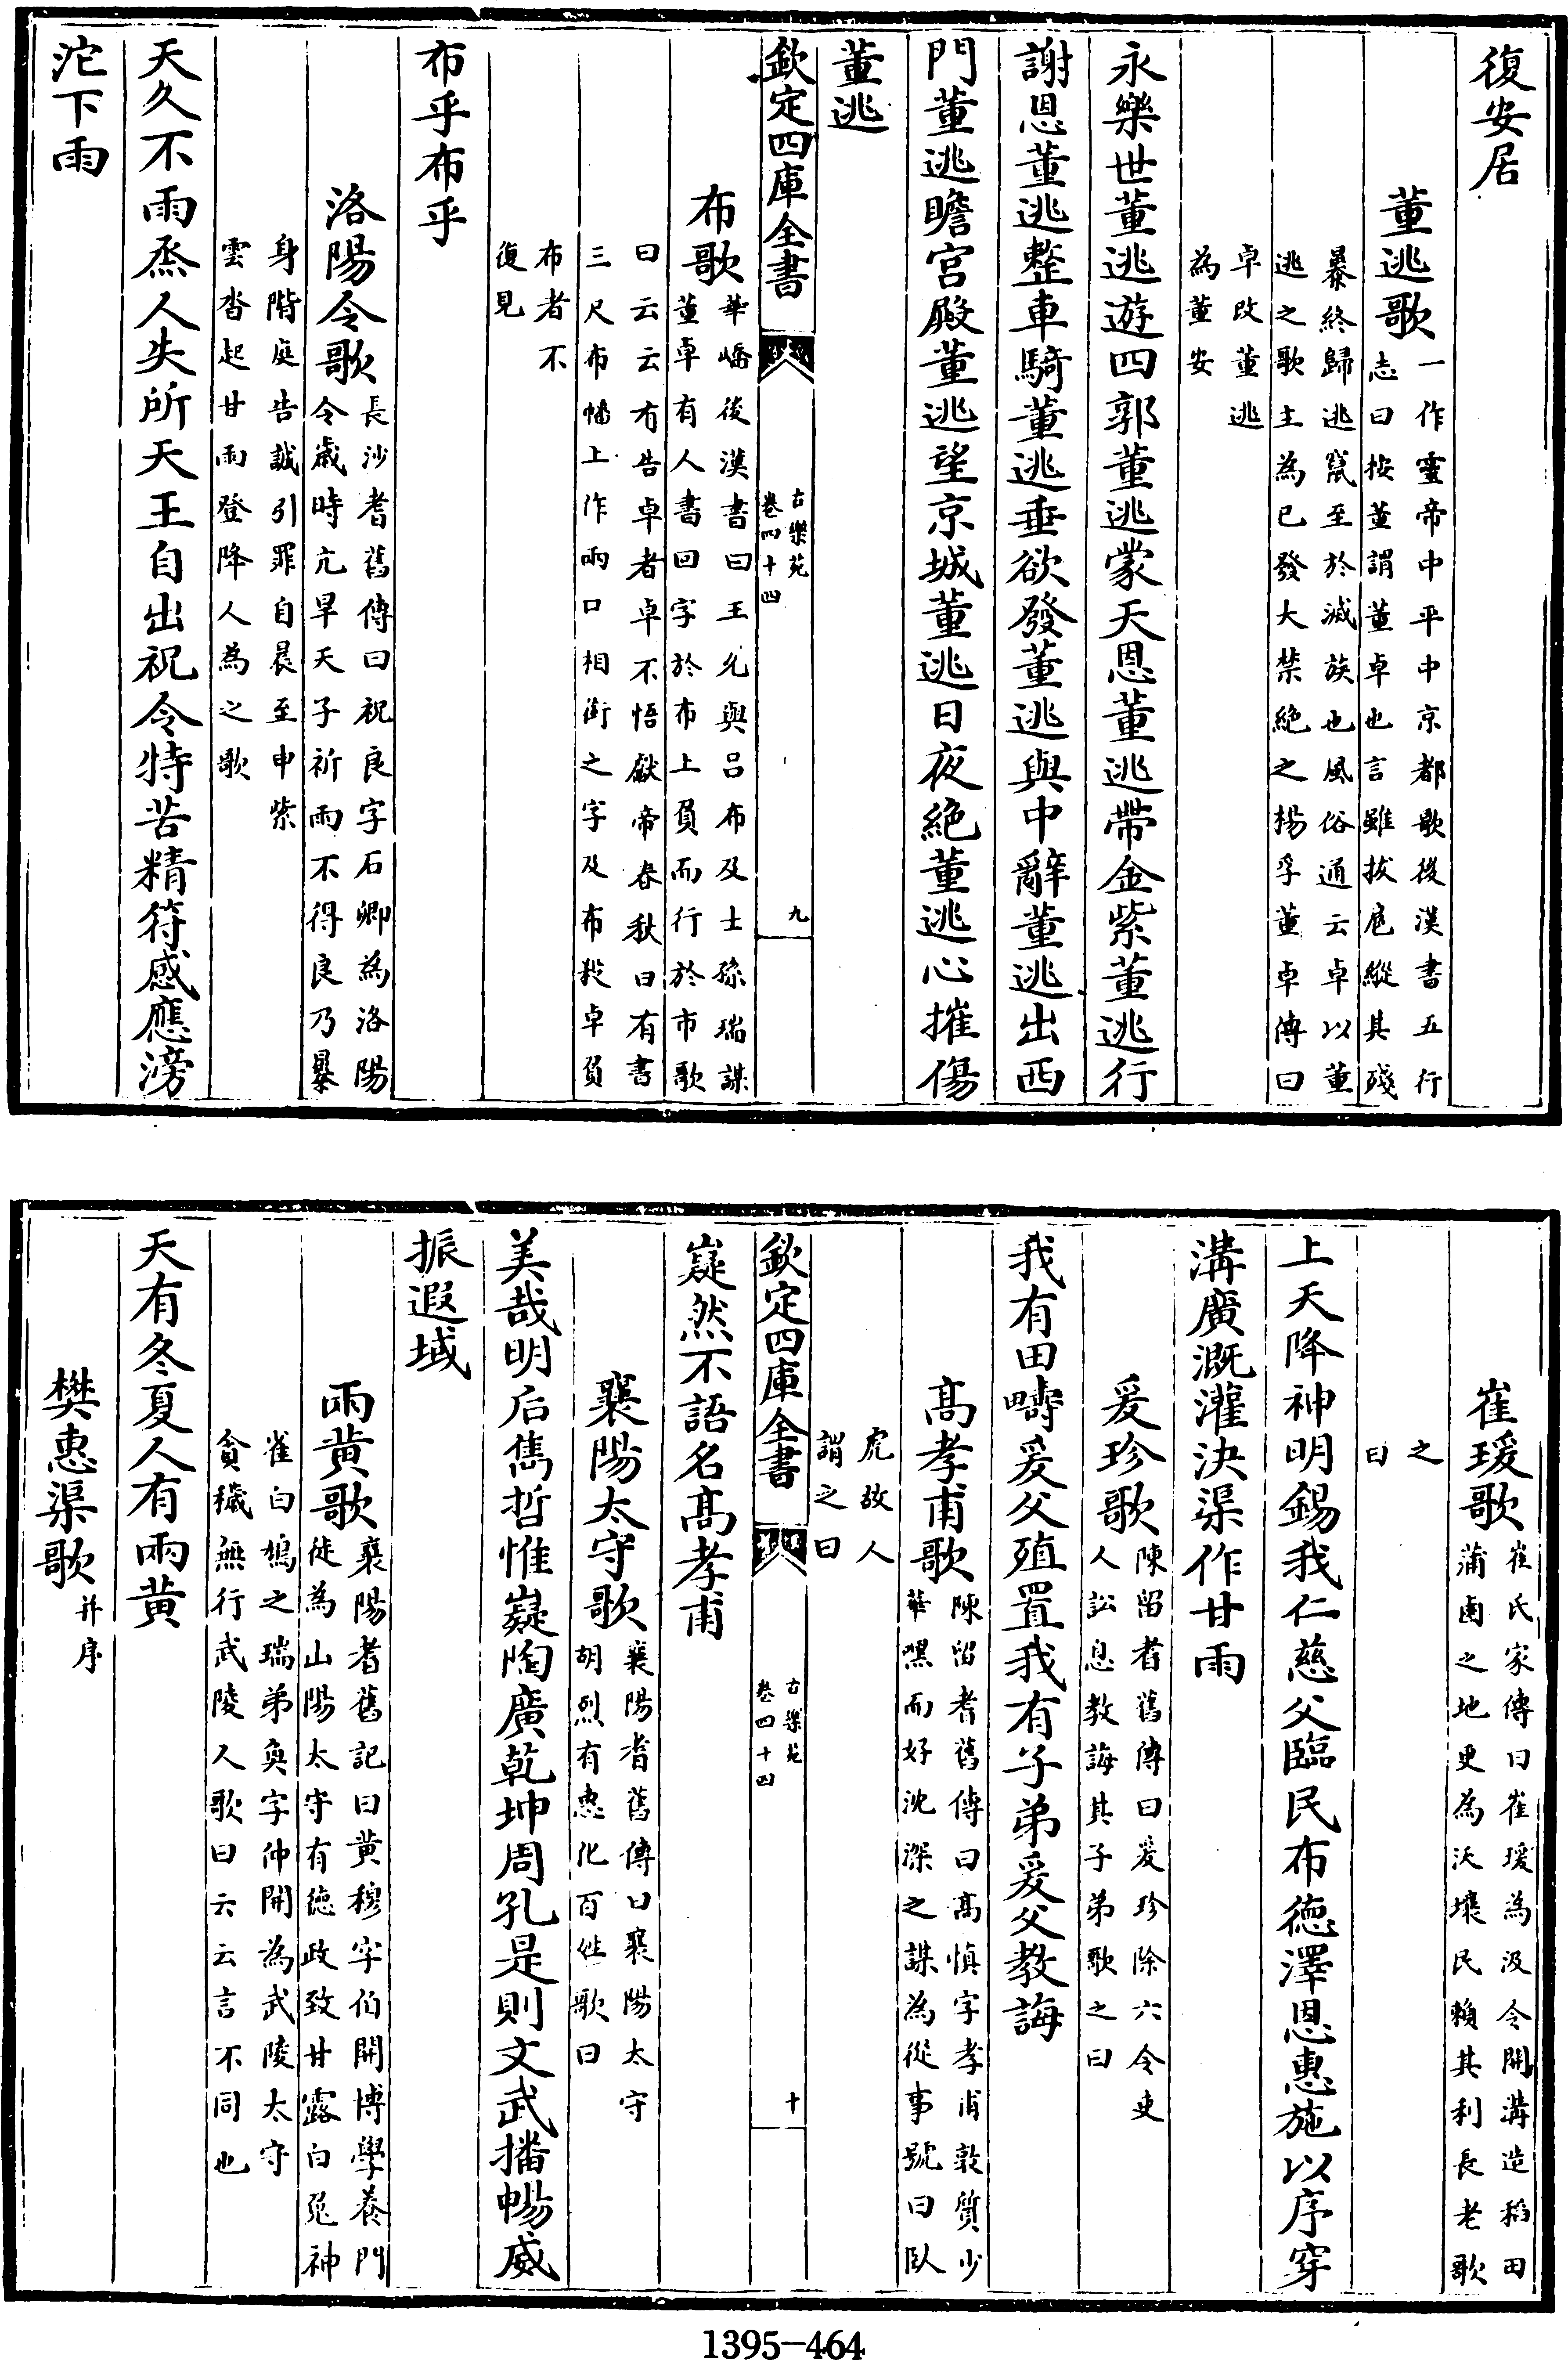 復安居
董逃歌一作靈帝中平中京都歌後漢書五行
志曰按董謂董卓也言雖拔扈縱其殘
暴終歸逃竄至於滅族也風俗通云卓以董
逃之歌主為已發大禁絶之楊孚董卓傳曰
卓改董逃
為董安
永樂世董逃遊四郭董逃蒙天恩董逃帶金紫董逃行
謝恩董逃整車騎董逃垂欲發董逃與中辭董逃出西
門董逃瞻宮殿董逃望京城董逃日夜絶董逃心摧傷
董逃
欽定四庫全書
古樂苑
卷四十四
九
布歌華嶠後漢書曰王允與呂布及士孫瑞謀
董卓有人書回字於布上負而行於市歌
曰云云有告卓者卓不悟獻帝春秋曰有書
三尺布幡上作兩口相銜之字及布殺卓負
布者不
復見
布乎布乎
洛陽令歌長沙耆舊傳曰祝良字石卿為洛陽
令歲時亢旱天子祈雨不得良乃暴
身階庭告誠引罪自晨至申紫
雲沓起甘雨登降人為之歌
天久不雨烝人失所天王自出祝令特苦精符感應滂
沱下雨
崔瑗歌崔氏家傳曰崔瑗為汲令開溝造稻田
蒲鹵之地更為沃壤民賴其利長老歌
之
曰
上天降神明錫我仁慈父臨民布德澤恩惠施以序穿
溝廣溉灌決渠作甘雨
爰珍歌陳留耆舊傳曰爰珍除六令吏
人訟息教誨其子弟歌之曰
我有田疇爰父殖置我有子弟爰父教誨
高孝甫歌陳留耆舊傳曰高慎字孝甫敦質少
華嘿而好沈深之謀為從事號曰臥
虎故人
謂之曰
欽定四庫全書
古樂苑
卷四十四
十
嶷然不語名高孝甫
襄陽太守歌襄陽耆舊傳曰襄陽太守
胡烈有惠化百姓歌曰
美哉明后雋哲惟嶷陶廣乾坤周孔是則文武播暢威
振遐域
雨黄歌襄陽耆舊記曰黄穆字伯開博學養門
徒為山陽太守有德政致甘露白兔神
雀白鳩之瑞弟奐字仲開為武陵太守
貪穢無行武陵人歌曰云云言不同也
天有冬夏人有兩黄
樊惠渠歌并序
1395-464